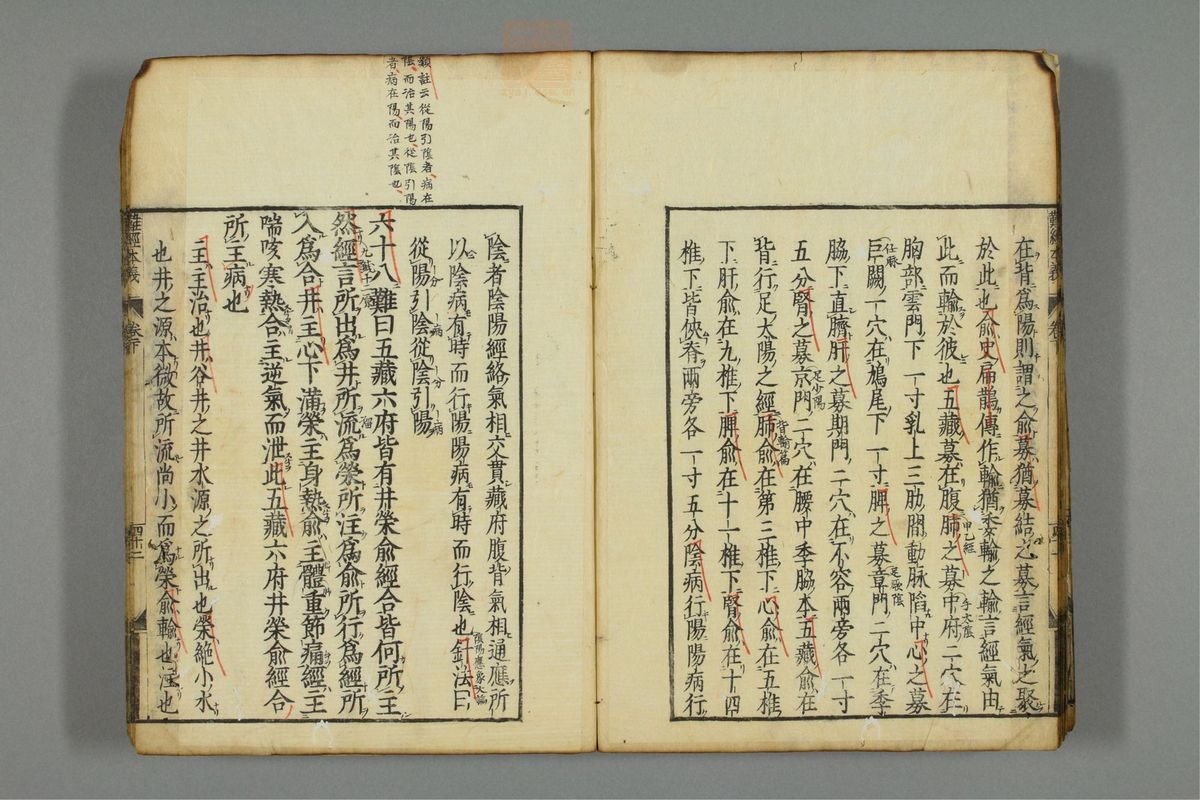 在背為陽則謂之俞募猶募結之募言經氣之聚
於此也俞史扁鵲傳作輸猶委輸之輸言經氣由
此而輸於彼也五藏募在腹肺之募中府二穴在
甲乙經
手太陰
胸部雲門下一寸乳上三肋間動脉陷中心之募
巨闕一穴在鳩尾下一寸脾之募章門二穴在季
任脉
足厥陰
脇下直臍肝之募期門二穴在不容兩旁各一寸
五分腎之募京門二穴在腰中季脇本五藏俞在
足少陽
背行足太陽之經肺俞在第三椎下心俞在五椎
背輸篇
下肝俞在九椎下脾俞在十一椎下腎俞在十四
椎下皆俠脊兩旁各一寸五分陰病行陽陽病行
難經本義
卷下
類註云從陽引陰者病在
陰而治其陽也從陰引陽
者病在陽而治其陰也
陰者陰陽經絡氣相交貫藏府腹背氣相通應所
以陰病有時而行陽陽病有時而行陰也針法曰
陰陽應象大論
從陽引陰從陰引陽
六十八難曰五藏六府皆有井滎俞經合皆何所主
然經言所出為井所流為滎所注為俞所行為經所
入為合井主心下滿滎主身熱俞主體重節痛經主
喘咳寒熱合主逆氣而泄此五藏六府井滎俞經合
所主病也
主主治也井谷井之井水源之所出也滎絶小水
也井之源本微故所流尚小而為滎俞輸也注也
難經本義
卷下
四十二